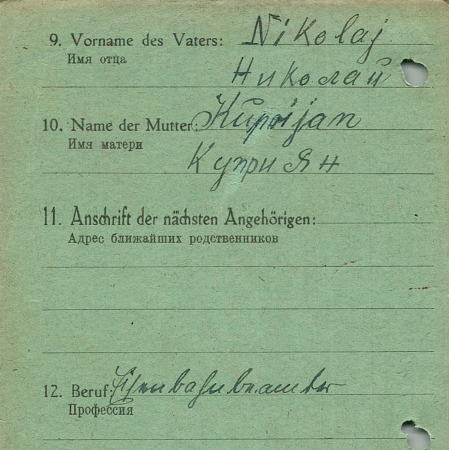 9. Vorname des Vaters: Nikolaj
Имя отца
Николай
10. Name der Mutter: Kuprijan
Имя матери
Куприян
11. Anschrift der nächsten Angehörigen:
Адрес ближайших родственников
12. Beruf: Eisenbahnbeamter
Профессия